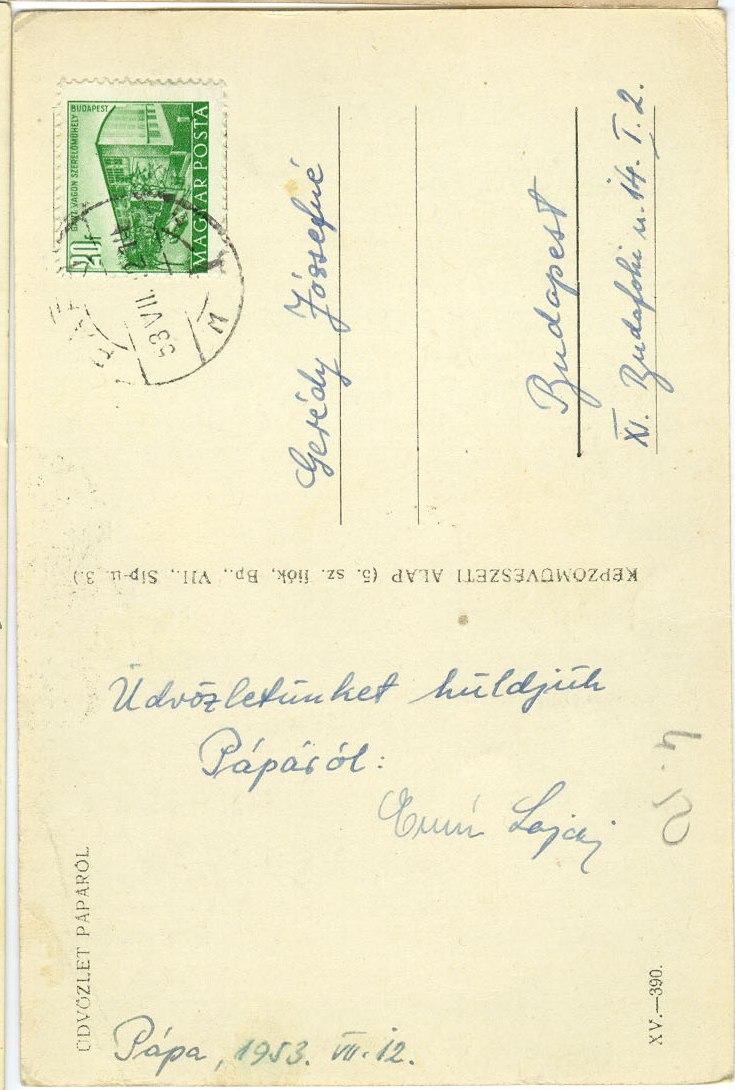 BUDAPEST
GANZ VAGON SZERELŐMŰHELY
20f
MAGYAR POSTA
53 VII
Gerédy Józsefné
Budapest
XI. Budafoki u. 14. I. 2.
KÉPZŐMŰVÉSZETI ALAP (5. sz. fiók, Bp., VII., Síp-u. 3.)
Üdvözletünket küldjük
Pápáról:
Lajos
ÜDVÖZLET PÁPÁRÓL
Pápa, 1953. VII. 12.
XV.—390.